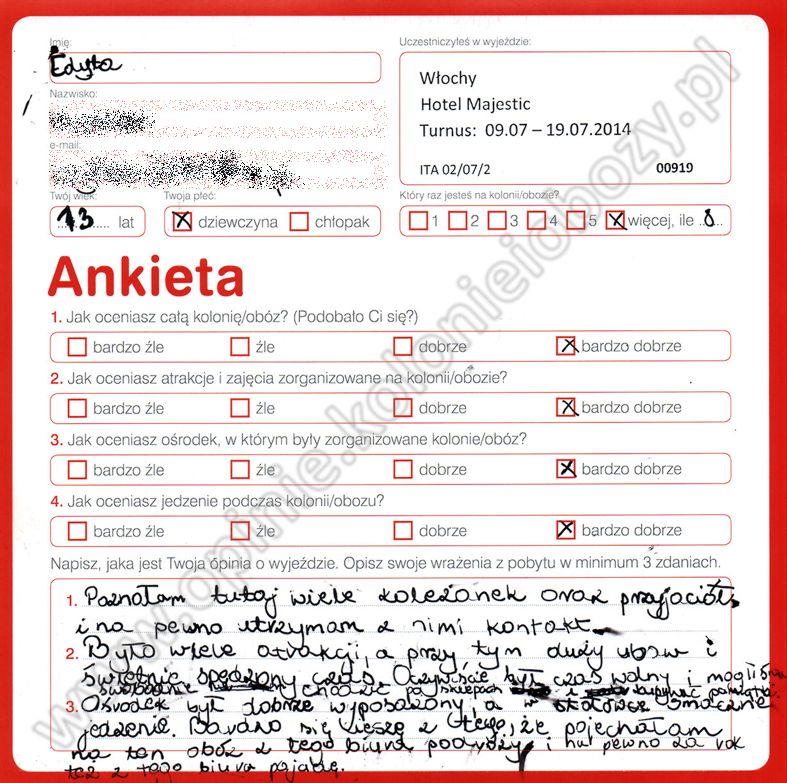 Imię:
Edyta
Uczestniczyłeś w wyjeździe:
Włochy
Hotel Majestic
Turnus: 09.07 – 19.07.2014
ITA 02/07/2 00919
Nazwisko:
e-mail:
Twój wiek: Twoja płeć:
13 lat dziewczyna chłopak
Który raz jesteś na kolonii/obozie?
1 2 3 4 5 więcej, ile 8
Ankieta
1. Jak oceniasz całą kolonię/obóz? (Podobało Ci się?)
bardzo źle źle dobrze bardzo dobrze
2. Jak oceniasz atrakcje i zajęcia zorganizowane na kolonii/obozie?
bardzo źle źle dobrze bardzo dobrze
3. Jak oceniasz ośrodek, w którym były zorganizowane kolonie/obóz?
bardzo źle źle dobrze bardzo dobrze
4. Jak oceniasz jedzenie podczas kolonii/obozu?
bardzo źle źle dobrze bardzo dobrze
Napisz, jaka jest Twoja opinia o wyjeździe. Opisz swoje wrażenia z pobytu w minimum 3 zdaniach.
1. Poznałam tutaj wiele koleżanek oraz przyjaciół
i na pewno utrzymam z nimi kontakt.
2. Było wiele atrakcji, a przy tym duży ubaw i
świetnie spędzony czas. Oczywiście był czas wolny i mogliśmy
swobodnie chodzić po sklepach i kupywać pamiątki.
3. Ośrodek był dobrze wyposażony, a w stołówce smaczne
jedzenie. Bardzo się cieszę z tego, że pojechałam
na ten obóz z tego biura podróży i na pewno za rok
też z tego biura pojadę.
www.opinie.kolonieiobozy.pl